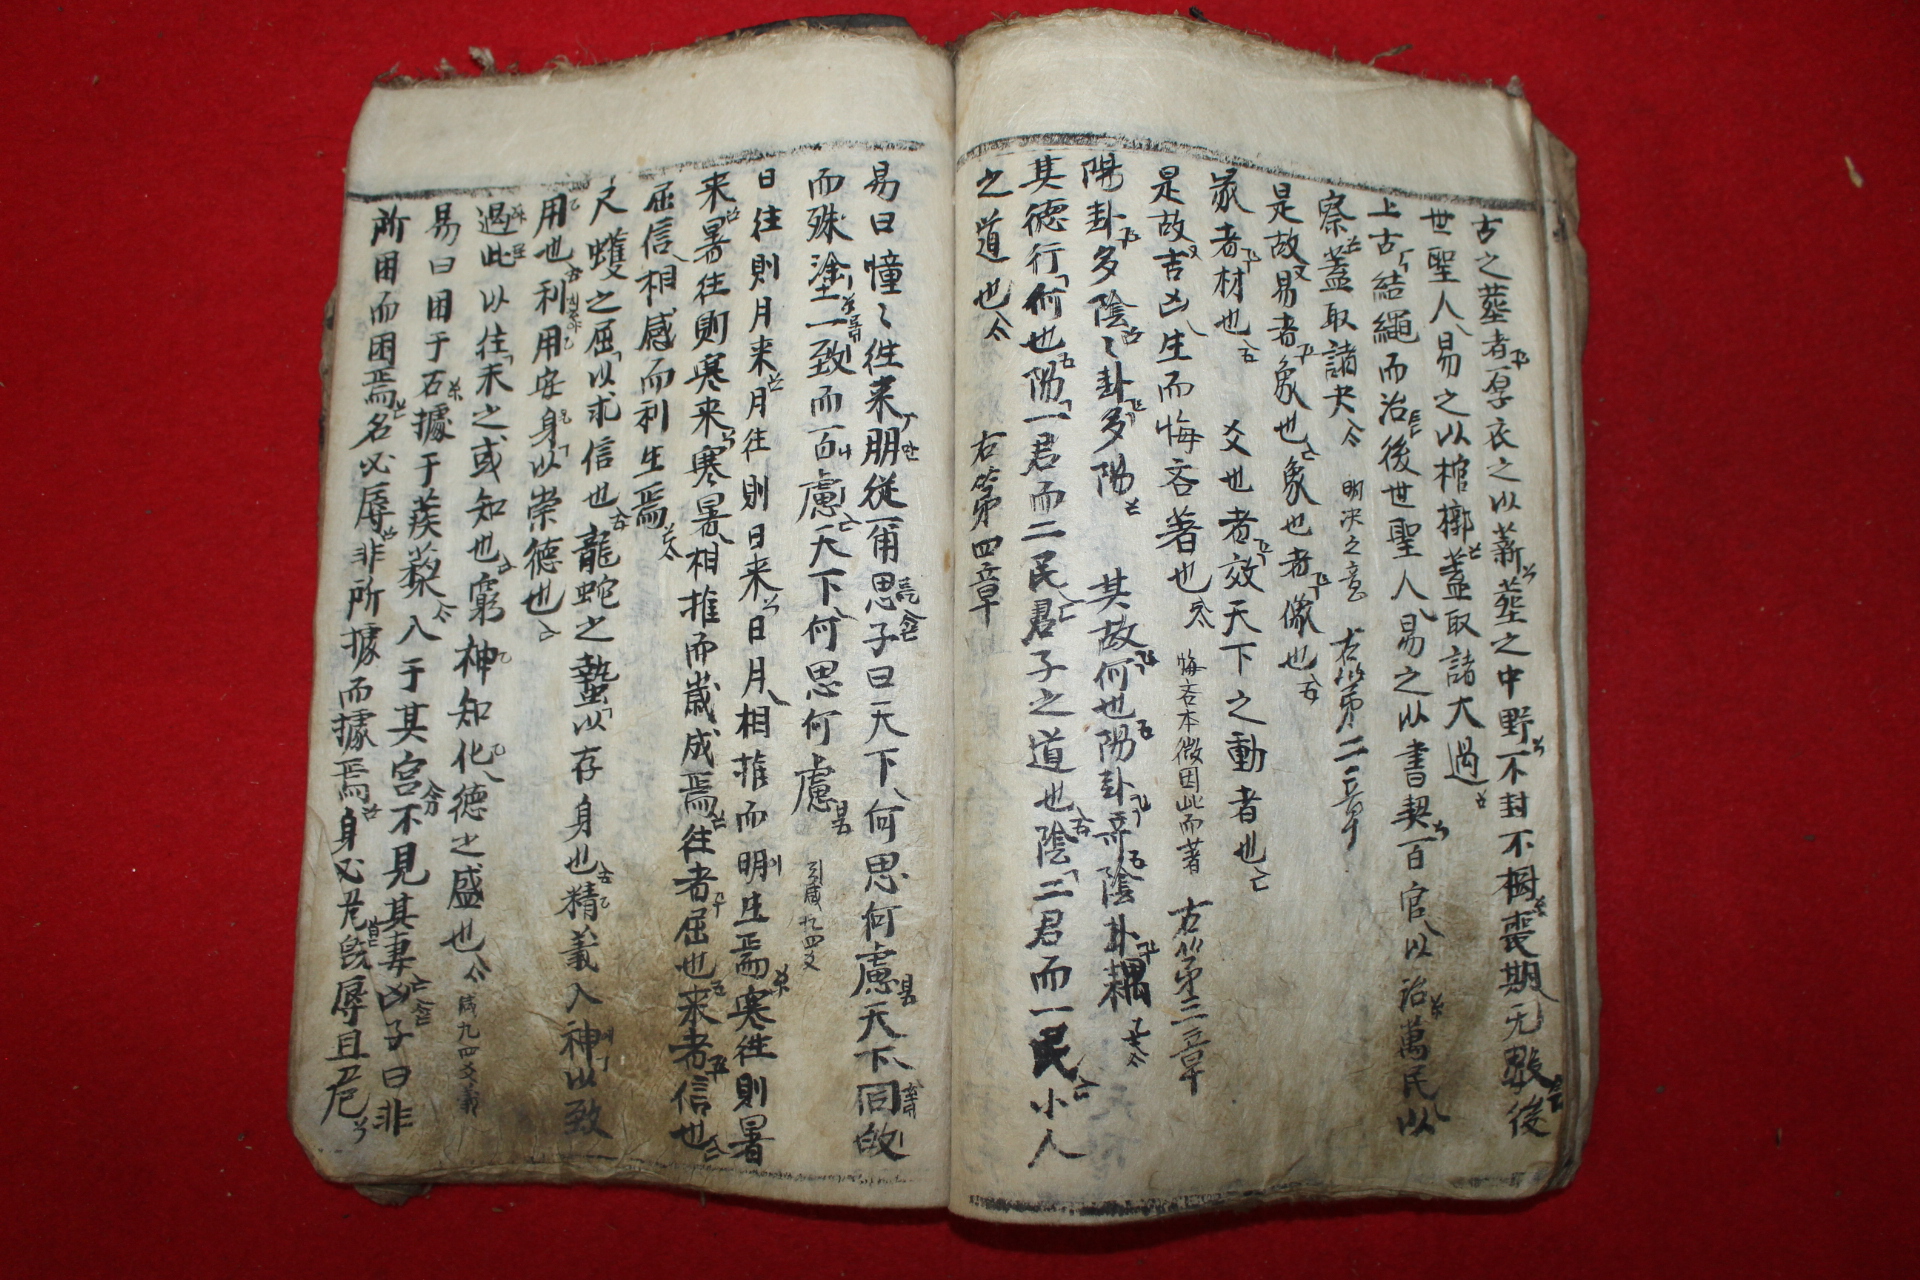 古之葬者厚衣之以薪葬之中野不封不樹喪期无數後
世聖人易之以棺槨盖取諸大過
上古結繩而治後世聖人易之以書契百官以治萬民以
察盖取諸夬 明决之意 右第二章
是故易者象也象也者像也
彖者材也 爻也者效天下之動者也
是故吉凶生而悔吝著也 悔吝本微因此而著 右第三章
陽卦多陰陰卦多陽 其故何也陽卦奇陰卦耦
其德行何也陽一君而二民君子之道也陰二君而一民小人
之道也 右第四章
易曰憧〻往来朋從爾思子曰天下何思何慮天下同故
而殊塗一致而百慮天下何思何慮 引咸九四爻
日往則月来月往則日来日月相推而明生焉寒往則暑
来暑往則寒来寒暑相推而歲成焉往者屈也来者信也
屈信相感而利生焉
尺蠖之屈以求信也龍蛇之蟄以存身也精義入神以致
用也利用安身以崇德也
過此以往未之或知也窮神知化德之盛也 咸九四爻義
易曰困于石據于蒺蔾入于其宮不見其妻凶子曰非
所困而困焉名必辱非所據而據焉身必危旣辱且危